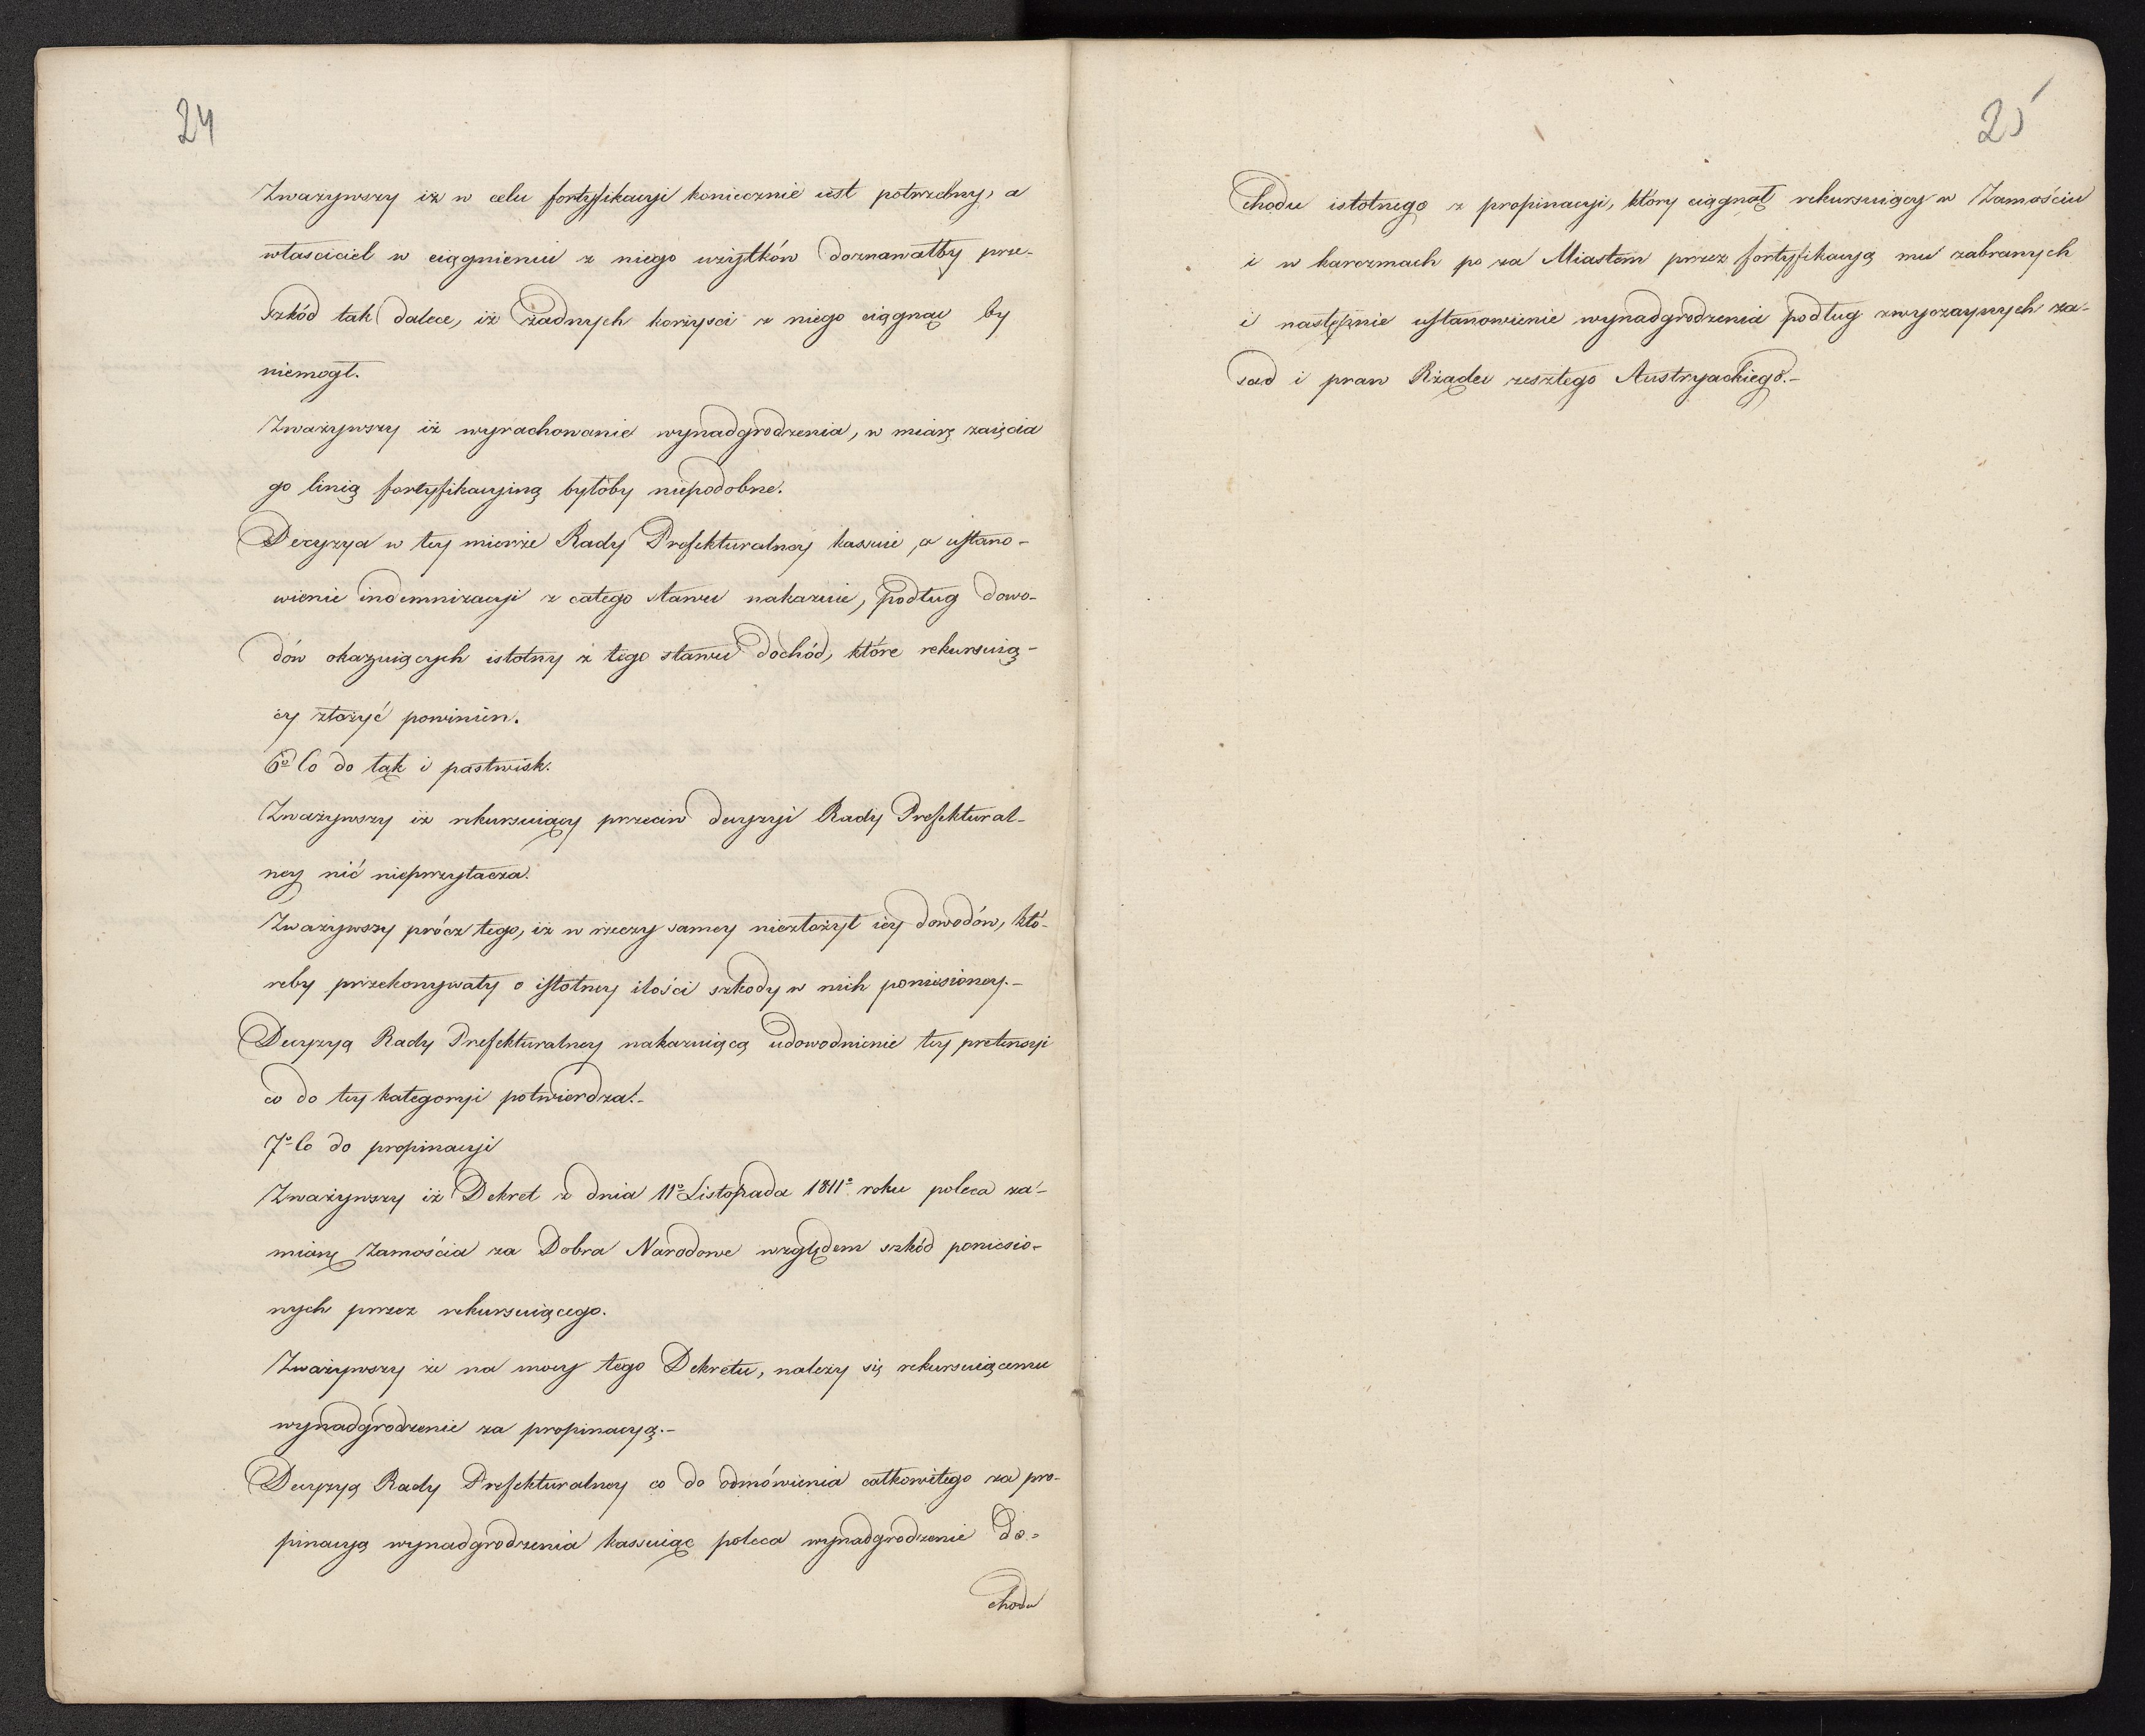 24
Zważywszy iż w celu fortyfikacyi koniecznie iest potrzebny, a
właściciel w ciągnieniu z niego użytków doznawałby prze-
szkód tak dalece, iż żadnych korzyści z niego ciągnąć by
niemogł.
Zważywszy iż wyrachowanie wynadgrodzenia, w miarę zaięcia
go linią fortyfikacyjną byłoby niepodobne.
Decyzya w tey mierze Rady Prefekturalney kassuie, a ustano-
wienie indemnizacyi z całego stawu nakazuie, podług dowo-
dów okazuiących istotny z tego stawu dochód, które rekursuią-
cy złożyć powinien.
6o Co do łąk i pastwisk.
Zważywszy iż rekursuiący przeciw decyzyi Rady Prefektural-
ney nic nieprzytacza.
Zważywszy prócz tego, iż w rzeczy samey niezłożył iey dowodów, któ-
reby przekonywały o istotney ilości szkody w nich poniesioney.-
Decyzyą Rady Prefekturalney nakazuiącą udowodnienie tey pretensyi
co do tey kategoryi potwierdza.-
7o Co do propinacyi
Zważywszy iż Dekret z dnia 11o Listopada 1811o roku poleca za-
mianę Zamościa za Dobra Narodowe względem szkód poniesio-
nych przez rekursuiącego.
Zważywszy że na mocy tego Dekretu, należy się rekursuiącemu
wynadgrodzenie za propinacyą.-
Decyzyą Rady Prefekturalney co do odmówienia całkowitego za pro-
pinacyą wynadgrodzenia kassuiąc poleca wynadgrodzenie do-
chodu
25
chodu istotnego z propinacyi, który ciągnął rekursuiący w Zamościu
i w karczmach po za Miastem przez fortyfikacyą mu zabranych
i następnie ustanowienie wynadgrodzenia podług zwyczaynych za-
sad i praw Rządu zeszłego Austryackiego.-